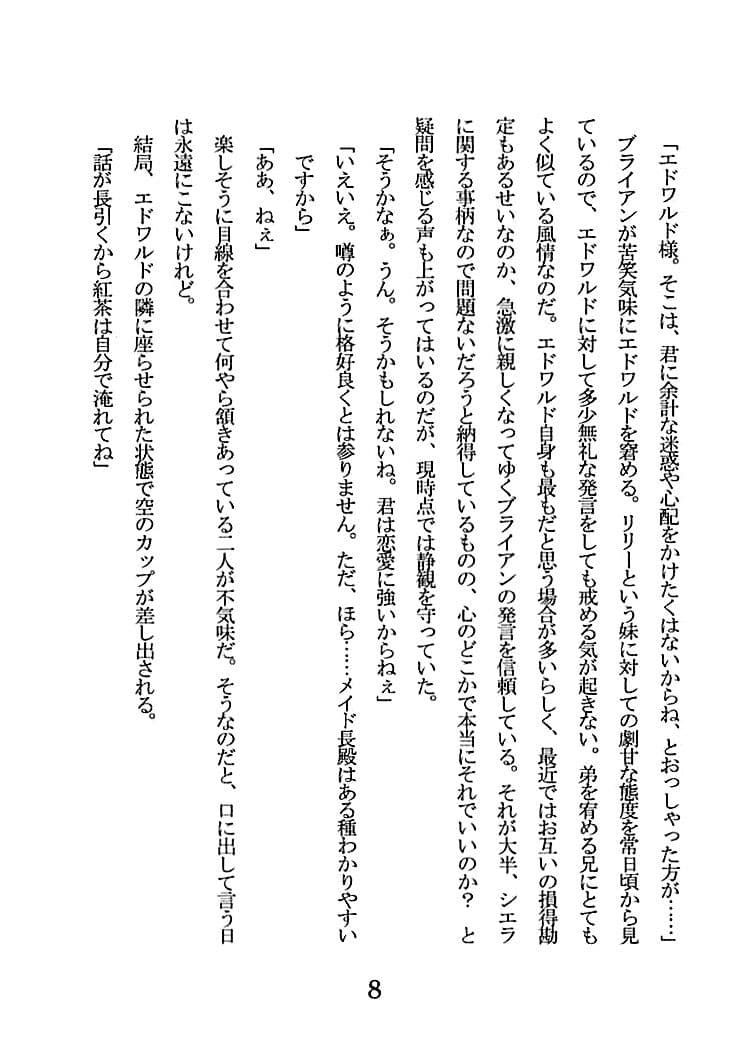 「エドワルド様。そこは、君に余計な迷惑や心配をかけたくはないからね、とおっしゃった方が……」
ブライアンが苦笑気味にエドワルドを窘める。リリーという妹に対しての劇甘な態度を常日頃から見
ているので、エドワルドに対して多少無礼な発言をしても戒める気が起きない。弟を宥める兄にとても
よく似ている風情なのだ。エドワルド自身も最もだと思う場合が多いらしく、最近ではお互いの損得勘
定もあるせいなのか、急激に親しくなってゆくブライアンの発言を信頼している。それが大半、シエラ
に関する事柄なので問題ないだろうと納得しているものの、心のどこかで本当にそれでいいのか？　と
疑問を感じる声も上がってはいるのだが、現時点では静観を守っていた。
「そうかなぁ。うん。そうかもしれないね。君は恋愛に強いからねぇ」
「いえいえ。噂のように格好良くとは参りません。ただ、ほら……メイド長殿はある種わかりやすい
ですから」
「ああ、ねぇ」
楽しそうに目線を合わせて何やら頷きあっている二人が不気味だ。そうなのだと、口に出して言う日
は永遠にこないけれど。
結局、エドワルドの隣に座らせられた状態で空のカップが差し出される。
「話が長引くから紅茶は自分で淹れてね」
8